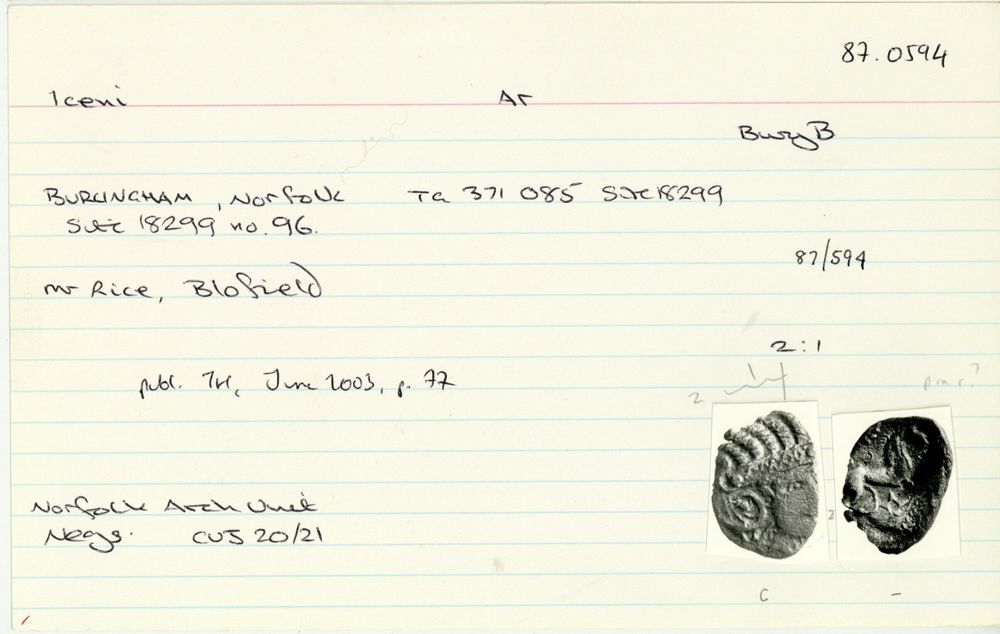 87.0594
Iceni Ar
Bury B
BURLINGHAM, Norfolk TG 371 085 Site 18299
Site 18299 no. 96.
87/594
mr Rice, Blofield
2:1
publ. TH, June 2003, p. 77
2
Norfolk Arch Unit
Negs. CUJ 20/21
2
C -